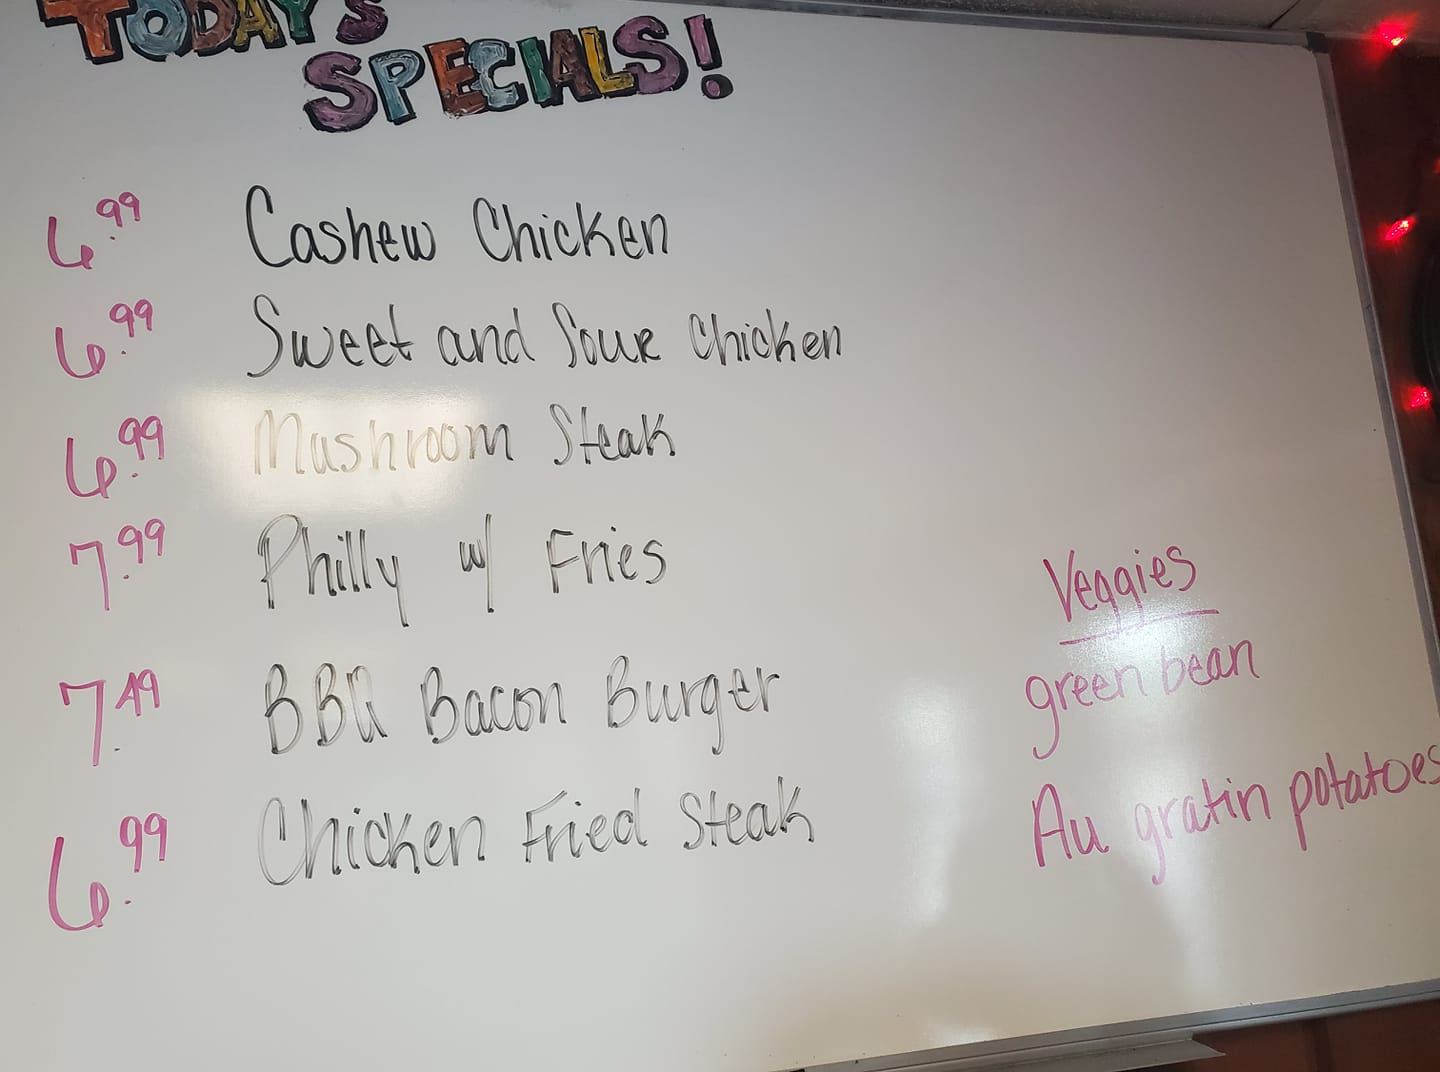 TODAY'S
SPECIALS!
6.99 Cashew Chicken
6.99 Sweet and Sour Chicken
6.99 Mushroom Steak
7.99 Philly w/ Fries
7.49 BBQ Bacon Burger
6.99 Chicken Fried Steak
Veggies
green bean
Au gratin potatoes